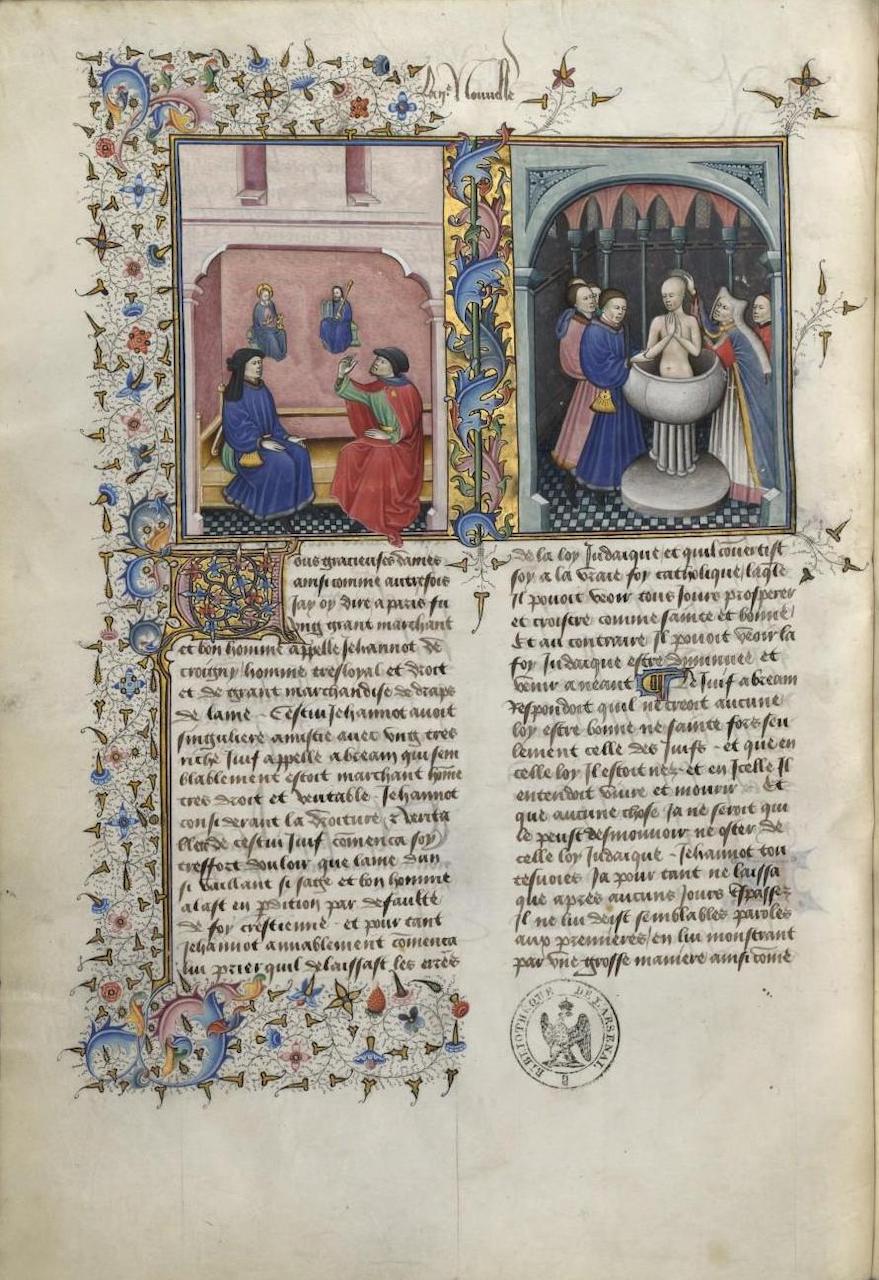 La ije Nouuelle
Vous gracieuses dames
ainsi comme autrefois
Jay oy dire a paris fu
vng grant marchant
et bon homme appelle Jehannot de
treuigny homme tresloyal et droit
et de grant marchandise de draps
de laine Cestui Jehannot auoit
singuliere amistie auec vng tres
riche Juif appelle abraam qui sem
blablement estoit marchant home
tres droit et veritable Jehannot
considerant la droiture & verita
blete de cestui Juif comenca soy
tresfort douloir que lame dun
si vaillant si sage et bon homme
alast en pdition par defaulte
de foy crestienne et pour tant
Jehannot amiablement comenca
lui prier quil delaissast les erreurs
de la loy Judaique et quil couertist
soy a la vraie foy catholique laqle
Il pouoit veoir tous Jours prosperer
et croistre comme sainte et bonne
Et au contraire Il pouoit veoir la
foy Judaique estre diminuee et
venir a neant Le Juif abraam
Respondoit quil ne creoit aucune
loy estre bonne ne sainte fors seu
lement celle des Juifs et que en
celle loy Il estoit nez et en Icelle Il
entendoit viure et mourir Et
que aucune chose Ja ne seroit qui
le peust desmouuoir ne oster de
celle loy Judaique Jehannot tou
tesuoies Ja pour tant ne laissa
que apres aucuns Jours trespassez
Il ne lui deist semblables paroles
aux premieres en lui monstrant
par vne grosse maniere ainsi come
BIBLIOTHEQUE DE L'ARSENAL